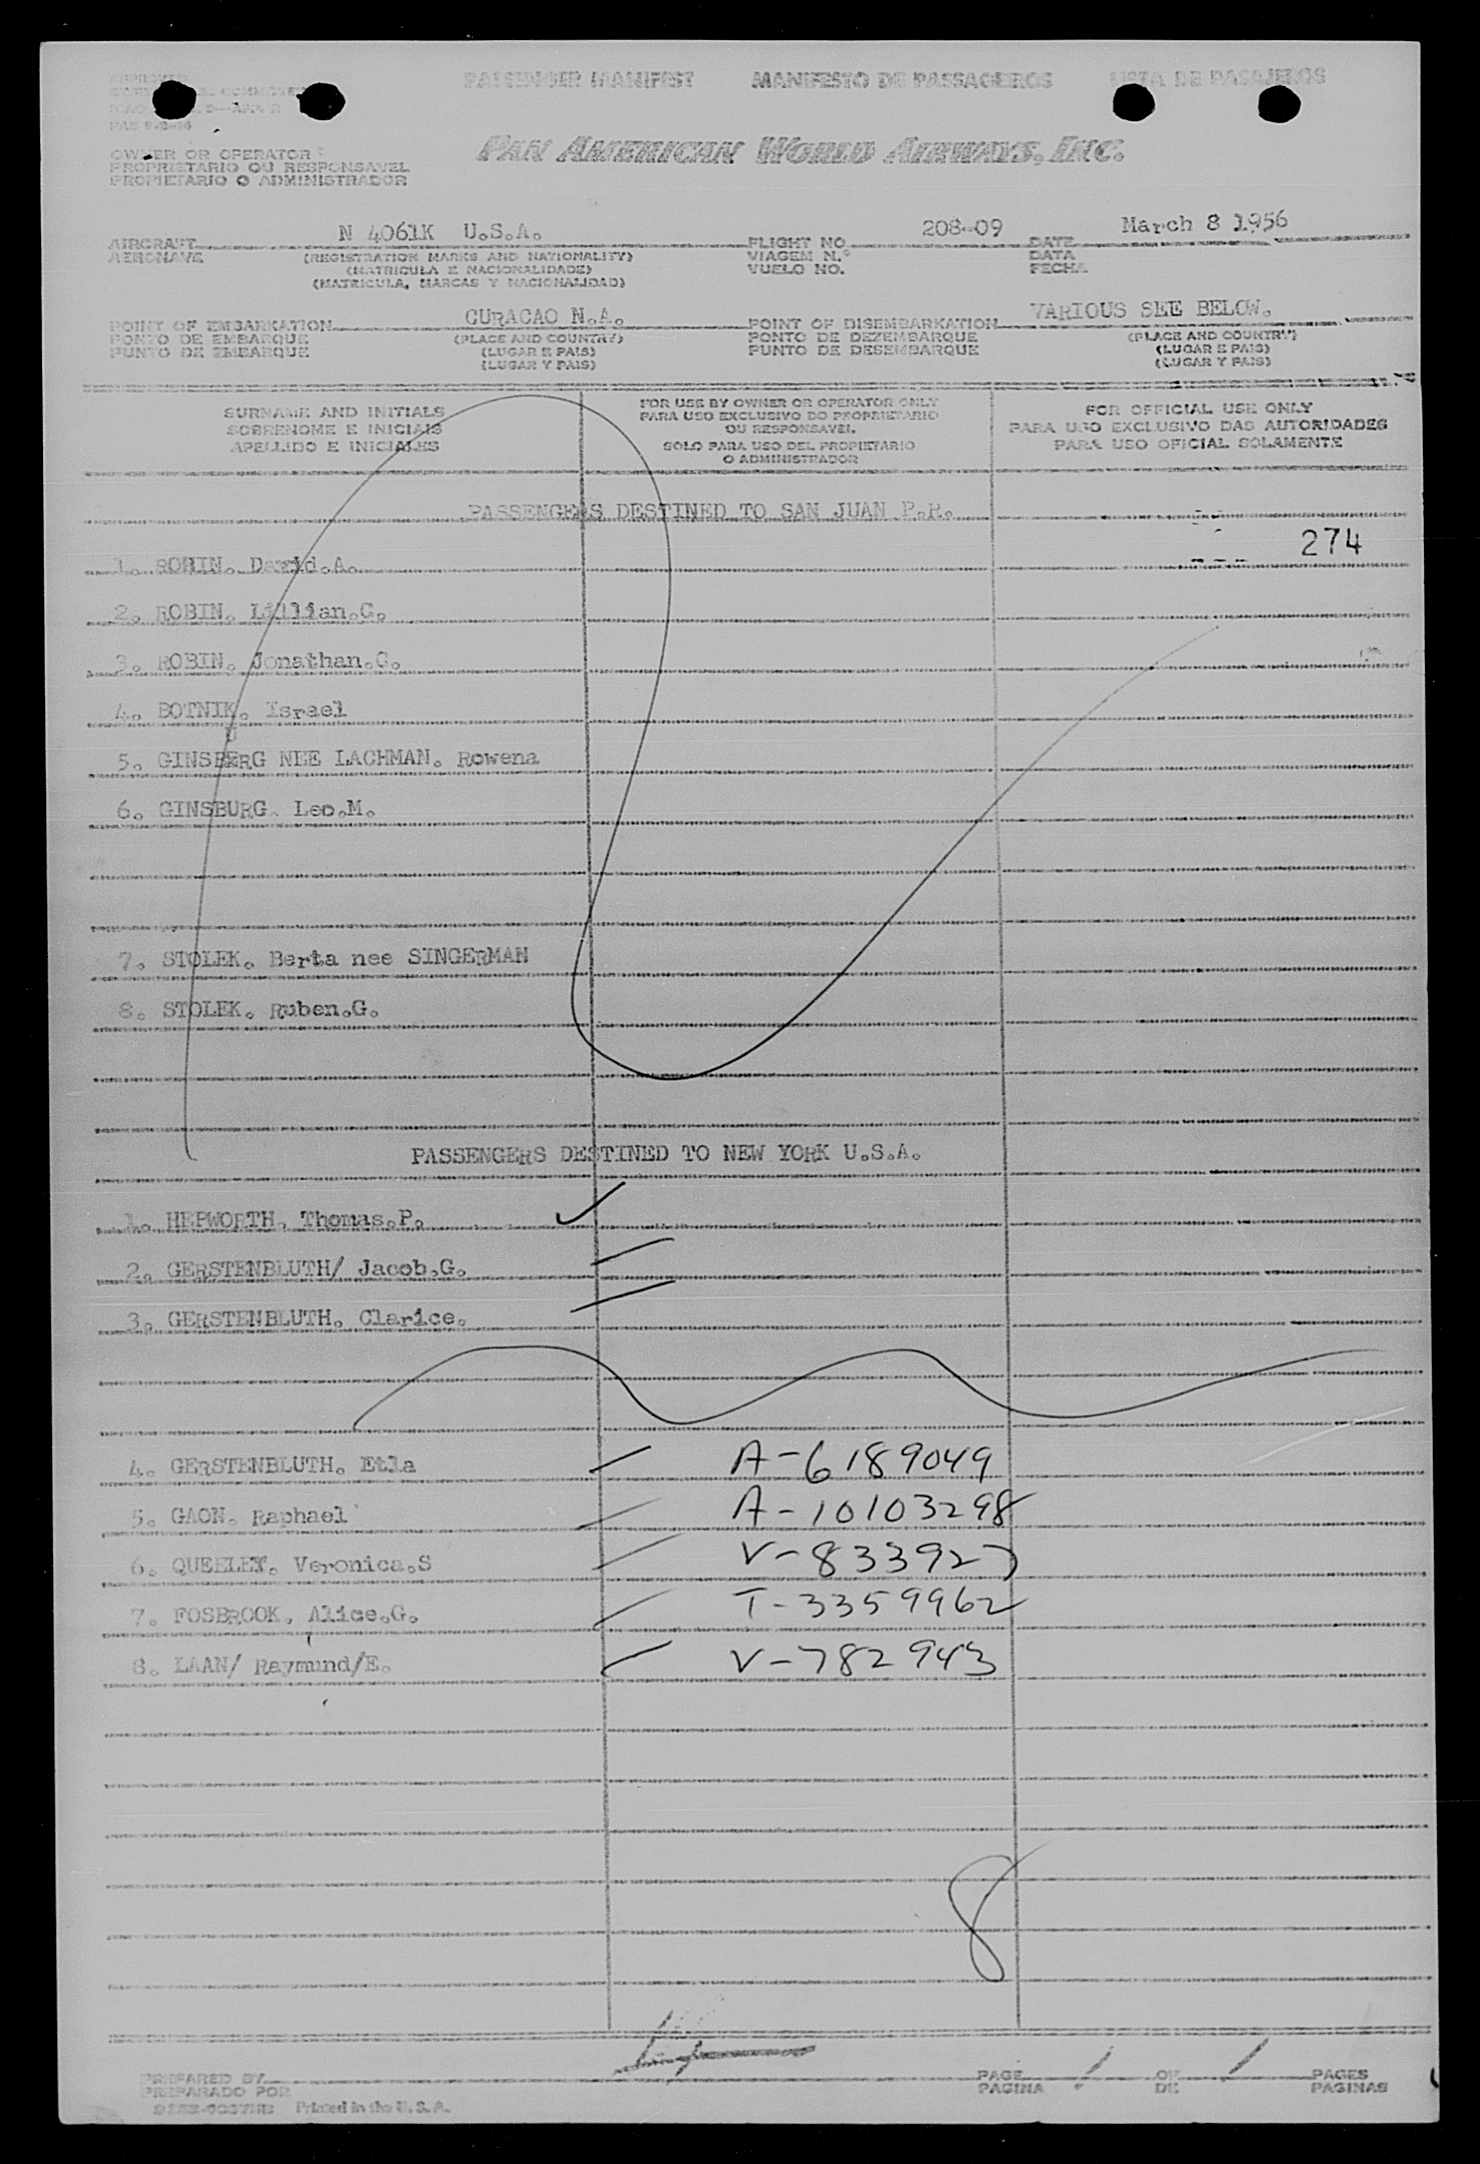 PASSENGER MANIFEST MANIFESTO DE PASSAGEIROS LISTA DE PASAJEROS
PAN AMERICAN WORLD AIRWAYS, INC.
OWNER OR OPERATOR
PROPRIETARIO OU RESPONSAVEL
PROPIETARIO O ADMINISTRADOR
AIRCRAFT N 4061K U.S.A. FLIGHT NO 208-09 DATE March 8 1956
AERONAVE (REGISTRATION MARKS AND NATIONALITY) VIAGEM N.º DATA
(MATRICULA E NACIONALIDADE) VUELO NO. FECHA
(MATRICULA, MARCAS Y NACIONALIDAD)
POINT OF EMBARKATION CURACAO N.A. POINT OF DISEMBARKATION VARIOUS SEE BELOW.
PONTO DE EMBARQUE (PLACE AND COUNTRY) PONTO DE DEZEMBARQUE (PLACE AND COUNTRY)
PUNTO DE EMBARQUE (LUGAR E PAIS) PUNTO DE DESEMBARQUE (LUGAR E PAIS)
(LUGAR Y PAIS) (LUGAR Y PAIS)
SURNAME AND INITIALS
SOBRENOME E INICIAIS
APELLIDO E INICIALES
FOR USE BY OWNER OR OPERATOR ONLY
PARA USO EXCLUSIVO DO PROPRIETARIO
OU RESPONSAVEL
SOLO PARA USO DEL PROPIETARIO
O ADMINISTRADOR
FOR OFFICIAL USE ONLY
PARA USO EXCLUSIVO DAS AUTORIDADES
PARA USO OFICIAL SOLAMENTE
PASSENGERS DESTINED TO SAN JUAN P.R.
274
1. ROBIN. David.A.
2. ROBIN. Lillian.G.
3. ROBIN. Jonathan.G.
4. BOTNIK. Israel
U
5. GINSBERG NEE LACHMAN. Rowena
6. GINSBURG. Leo.M.
7. STOLEK. Berta nee SINGERMAN
8. STOLEK. Ruben.G.
PASSENGERS DESTINED TO NEW YORK U.S.A.
1. HEPWORTH. Thomas.P.
2. GERSTENBLUTH/ Jacob.G.
3. GERSTENBLUTH. Clarice.
4. GERSTENBLUTH. Etla A-6189049
5. GAON. Raphael A-10103298
6. QUEELEY. Veronica.S V-833927
7. FOSBROOK. Alice.G. T-3359962
8. LAAN/ Raymund/E. V-782943
8
PREPARED BY PAGE 1 OF 1 PAGES
PREPARADO POR PAGINA DE PAGINAS
Printed in the U.S.A.